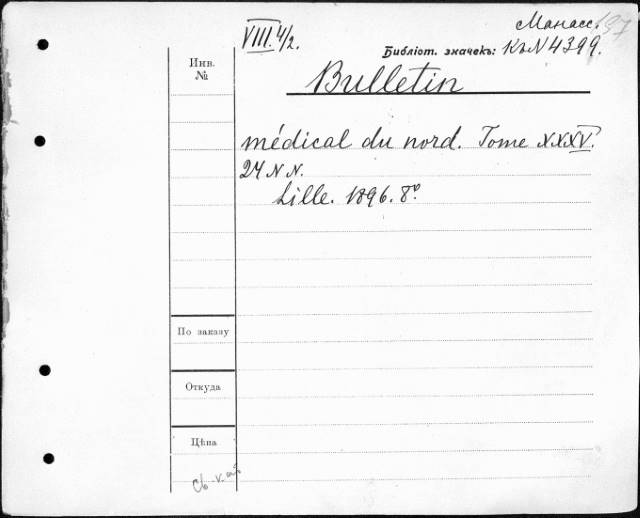 Манасс. 97
VIII. 4/2.
Библіот. значекъ: Къ N 4399.
Инв.
№
Bulletin
médical du nord. Tome XXXV.
24 N N.
Lille. 1896. 8º.
По заказу
Откуда
Цѣна